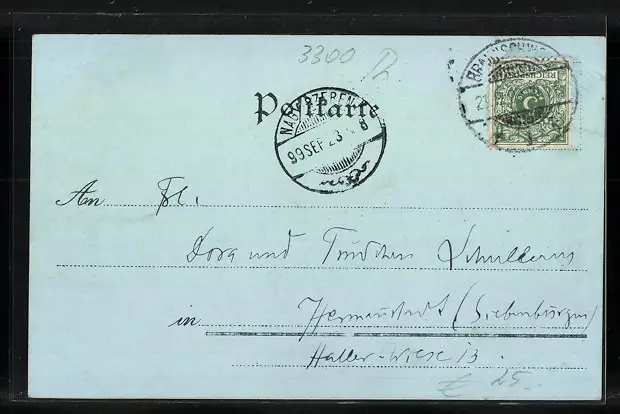 3300
BRAUNSCHWEIG
REICHSPOST
Postkarte
NAGYSZEBEN
99 SEP 23
An Frl.
Dora und Trudchen Schullerus
in Hermannstadt (Siebenbürgen)
Haller-Wiese 13
€ 25.-